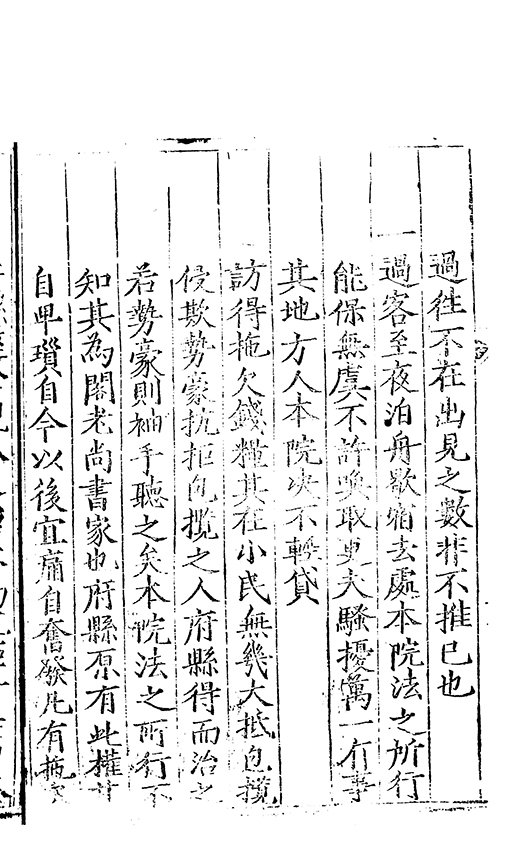 過往不在出見之數非不推已也
一過客至夜泊舟歇宿去處本院法之所行
能保無虞不許喚取更夫騷擾萬一有事
其地方人本院决不輕貸
訪得拖欠錢糧其在小民無幾大抵包攬
侵欺勢豪抗拒包攬之人府縣得而治之
若勢豪則袖手聽之矣本院法之所行不
知其為閣老尚書家也府縣原有此權
自卑瑣自今以後宜痛自奮發凡有拖